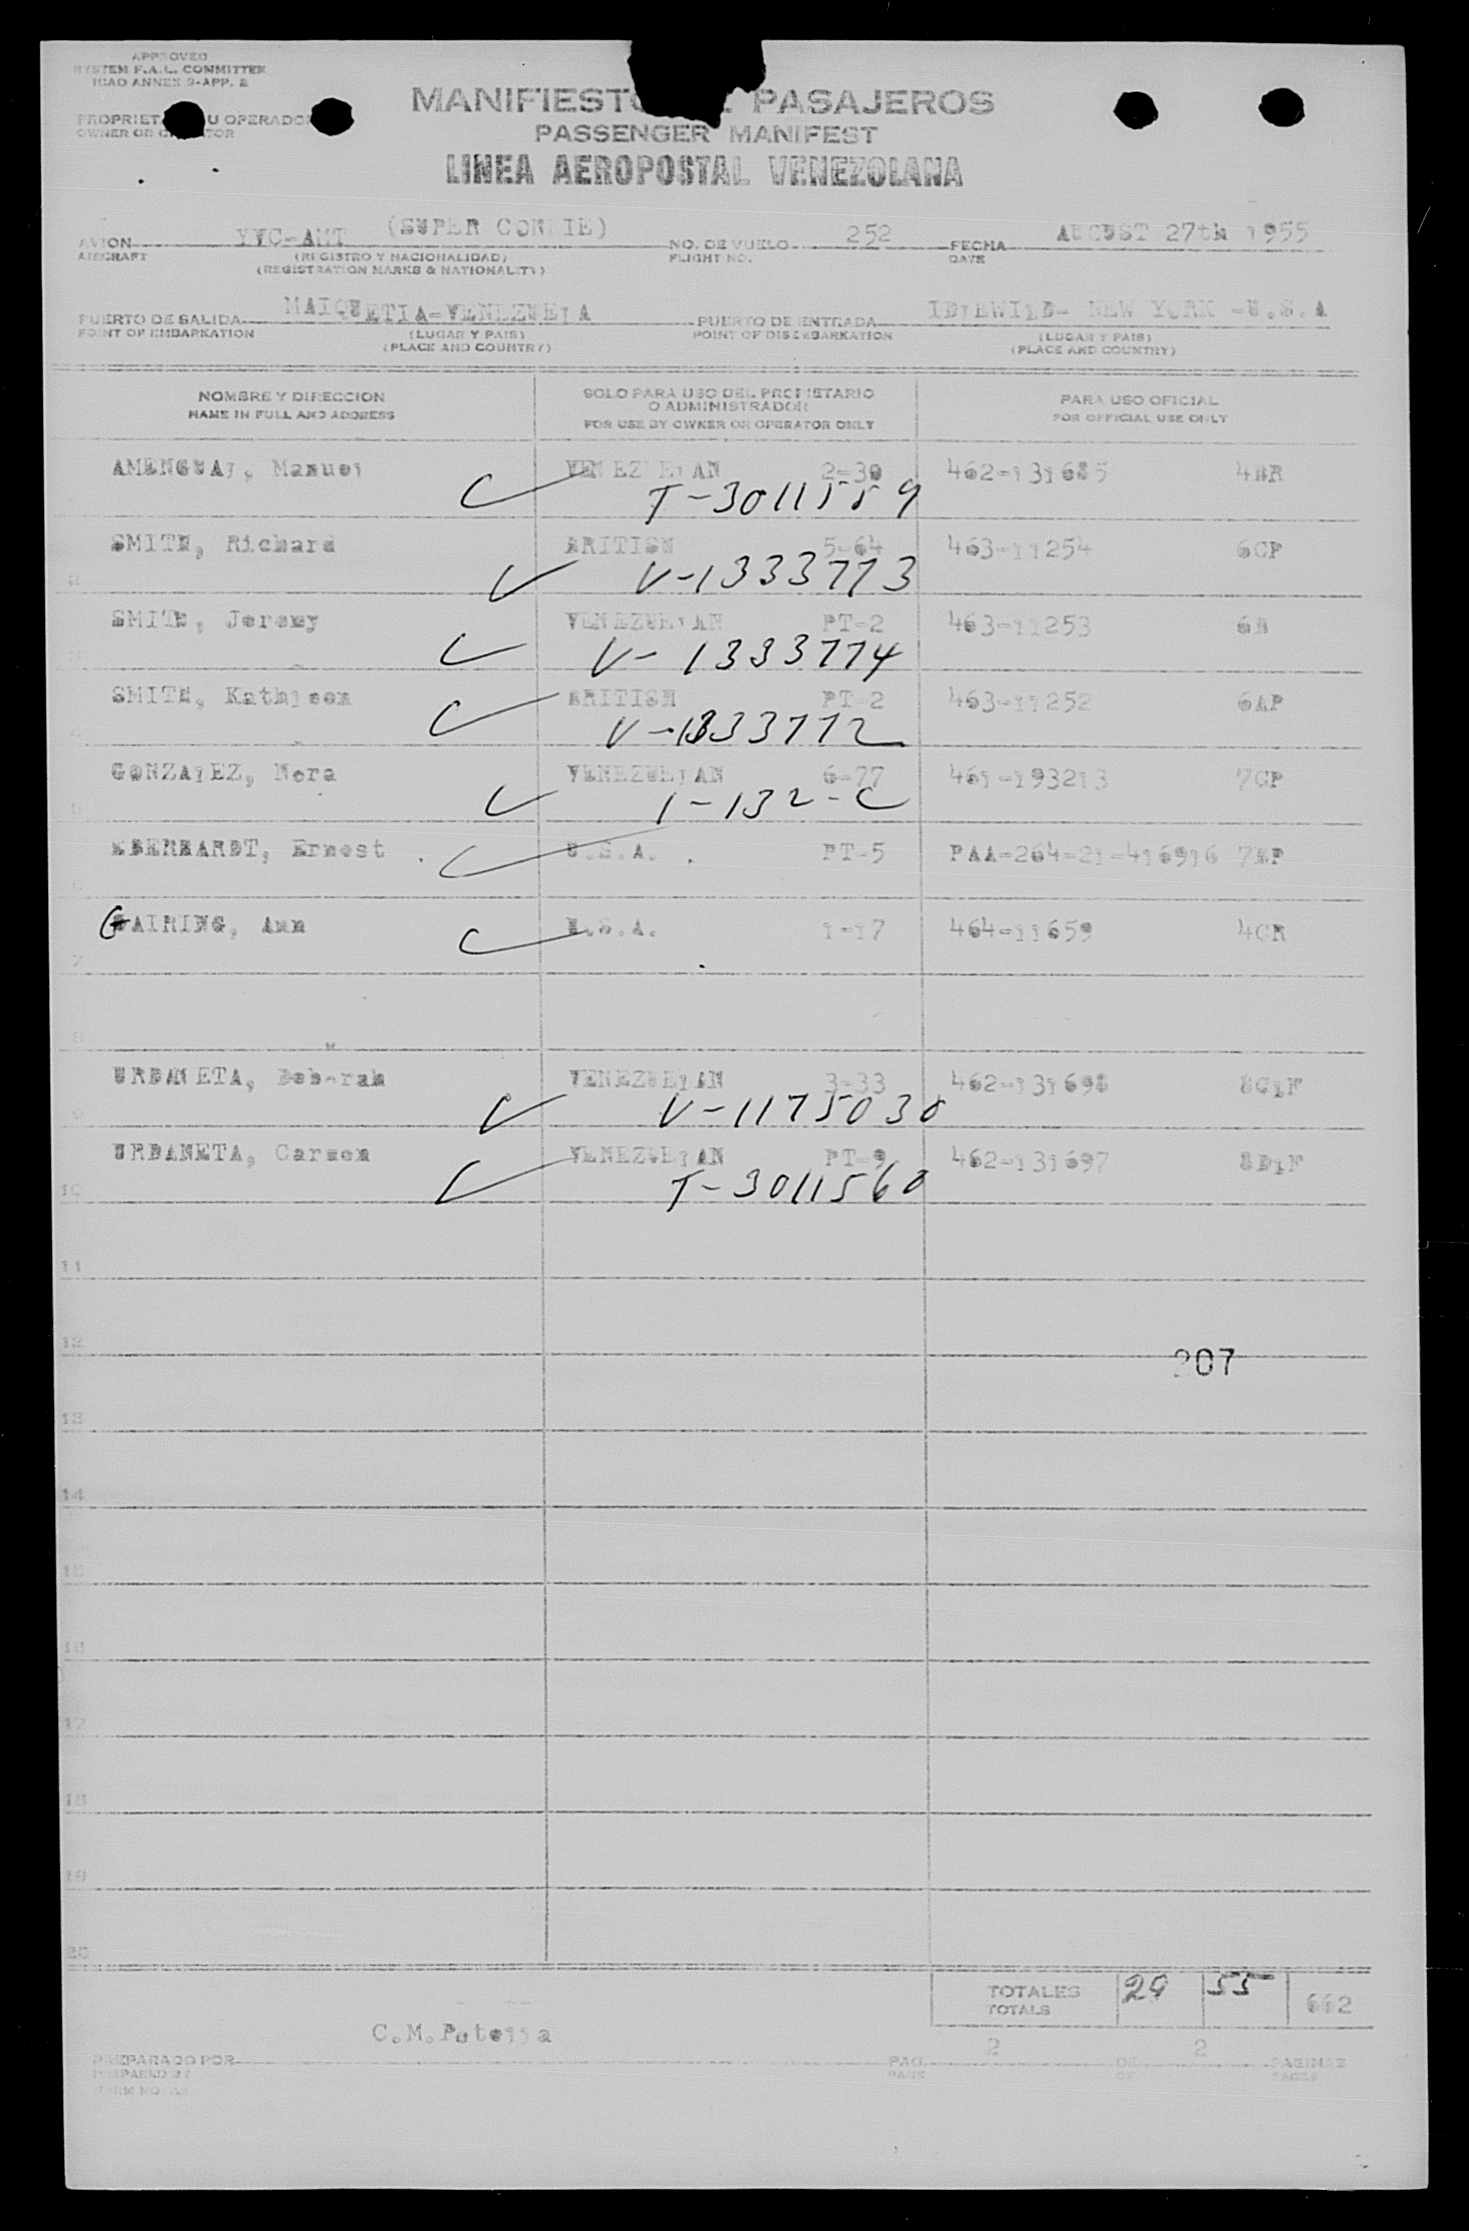 APPROVED
SYSTEM F.A.L. COMMITTEE
ICAO ANNEX 9-APP. 2
MANIFIESTO PASAJEROS
U OPERADOR
OWNER OR
PASSENGER MANIFEST
LINEA AEROPOSTAL VENEZOLANA
AVION YVC-AMT (SUPER CONNIE) NO. DE VUELO 252 FECHA AUGUST 27th 1955
AIRCRAFT (REGISTRO Y NACIONALIDAD) FLIGHT NO. DATE
(REGISTRATION MARKS & NATIONALITY)
PUERTO DE SALIDA MAIQUETIA-VENEZUELA PUERTO DE ENTRADA IDLEWILD- NEW YORK -U.S.A
POINT OF EMBARKATION (LUGAR Y PAIS) POINT OF DISEMBARKATION (LUGAR Y PAIS)
(PLACE AND COUNTRY) (PLACE AND COUNTRY)
NOMBRE Y DIRECCION SOLO PARA USO DEL PROPIETARIO O ADMINISTRADOR PARA USO OFICIAL
NAME IN FULL AND ADDRESS FOR USE BY OWNER OR OPERATOR ONLY FOR OFFICIAL USE ONLY
AMENGUAL, Manuel VENEZUELAN 2-30 462-131685 4BR
T-3011559
SMITH, Richard BRITISH 5-64 463-11254 6CP
V-1333773
SMITH, Jeremy VENEZUELAN PT-2 463-11253 6B
V-1333774
SMITH, Kathleen BRITISH PT-2 463-11252 6AP
V-1333772
GONZALEZ, Nora VENEZUELAN 6-77 461-193213 7CP
1-132-C
EBERHARDT, Ernest U.S.A. PT-5 PAA-264-21-416916 7EP
GAIRING, Ann U.S.A. 1-17 464-11659 4CR
7
8
URDANETA, Deborah VENEZUELAN 3-33 462-131698 8C1F
9 V-1175030
URDANETA, Carmen VENEZUELAN PT-9 462-131697 8D1F
10 T-3011560
11
12
207
13
14
15
16
17
18
19
20
TOTALES 29 55 662
TOTALS
C.M.Putella
PREPARADO POR PAG. 2 DE 2 PAGINAS
PREPARED BY PAGE OF PAGES